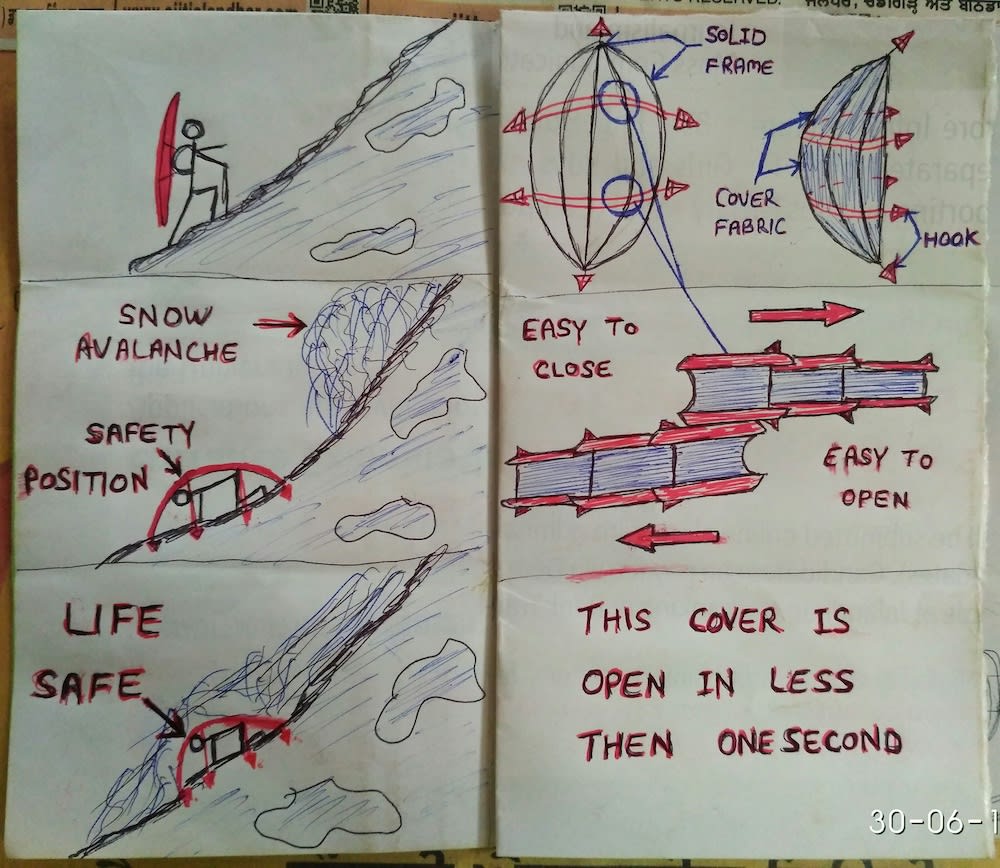 www.ejitjalandhar.com
RESERVED.
SNOW
AVALANCHE
SAFETY
POSITION
LIFE
SAFE
SOLID
FRAME
COVER
FABRIC
HOOK
EASY TO
CLOSE
EASY TO
OPEN
THIS COVER IS
OPEN IN LESS
THEN ONE SECOND
30-06-1